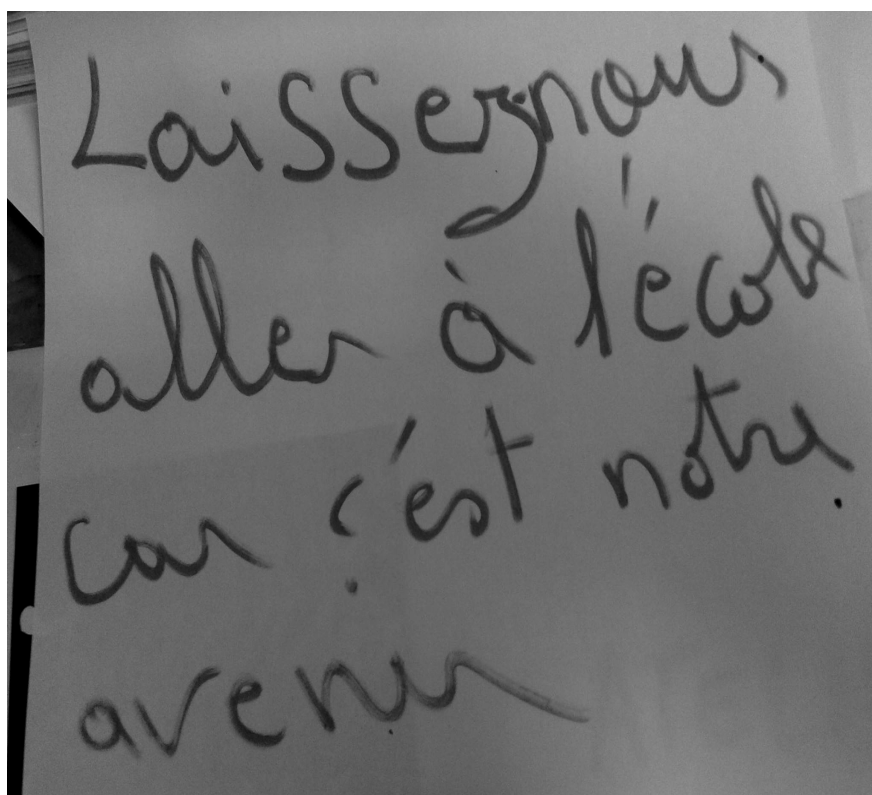 Laissez-nous
aller à l'école
car c'est notre
avenir